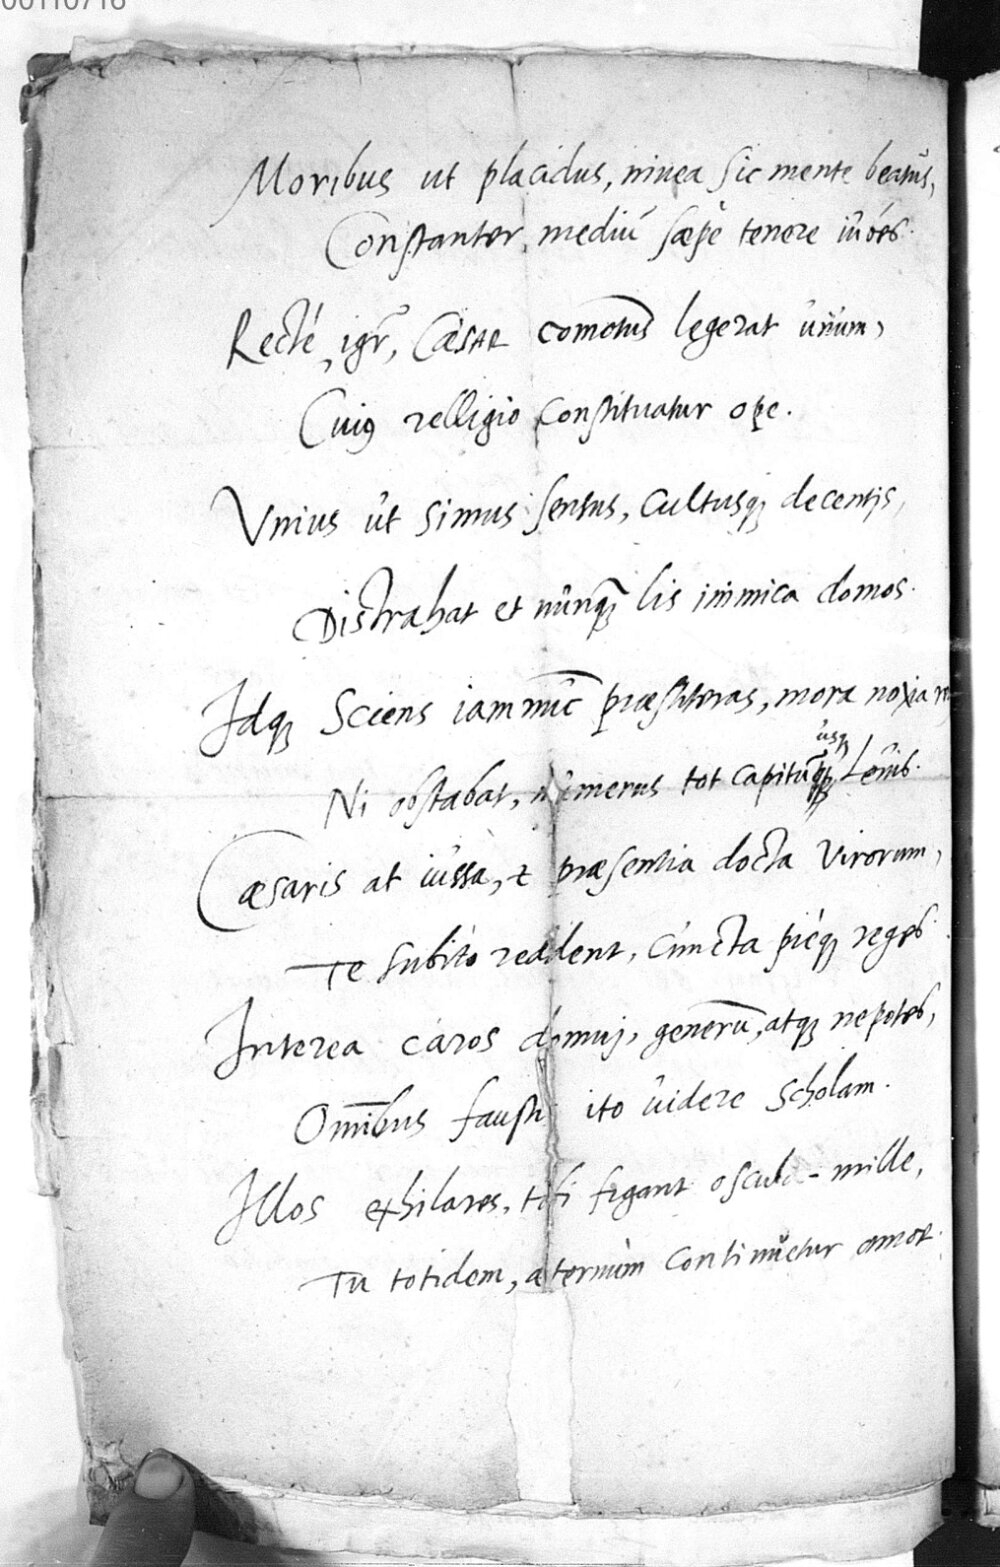 00110716
Moribus ut placidus, nivea sic mente beatus,
Constanter, mediú sæpè tenere iuões.
Recté, igr̃, CæSAR comotus legerat ûnum,
Cuiꝯ relligio constituatur ope.
Vnius ût simus sensus, Cultusqꝫ decentis,
Distrahat et nûnqꝫ lis inimica domos.
Idqꝫ Sciens iam nũc præstiteras, mora noxia
Ni obstabat, numerus tot capitũ usqꝫ Leuis.
Cæsaris at iussa, & præsentia docta Virorum,
Te subitò reddent, Cúncta piéqꝫ reges.
Interea caros domuj, generũ, atqꝫ nepotes,
Om̃ibus faustè ito ûidere Scholam.
Illos exhilares, tibi figant oscula mille,
Tu totidem, æternùm Continuetur amor.